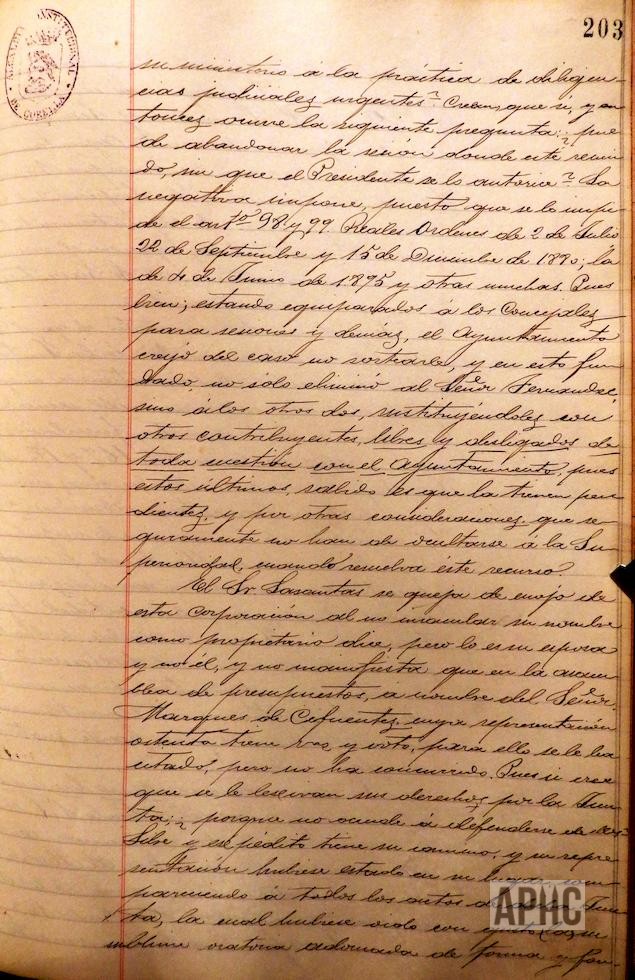 203
ALCALDIA CONSTITUCIONAL
DE CORELLA
su ministerio a la práctica de diligen-
cias judiciales urgentes? Crean, que si, y en
tonces ocurre la siguiente pregunta: ¿pue
de abandonar la sesión donde esté reuni
do, sin que el Presidente se lo autorice? La
negativa impone, puesto que se lo impi-
de el art.to 98 y 99 Reales Ordenes de 2 de Julio
22 de Septiembre y 15 de Diciembre de 1880; la
de 4 de Junio de 1.895 y otras muchas. Pues
bien; estando equiparados á los Concejales
para sesiones y demás, el Ayuntamiento
creyó del caso no sortearlo, y en esto fun
dado, no sólo elimino al Señor Fernandez,
sino á los otros dos, sustituyéndoles con
otros contribuyentes, libres y desligados de
toda cuestión con el Ayuntamiento, pues
estos últimos, sabido es que la tienen pen
dientes, y por otras consideraciones que se-
guramente no han de ocultarse á la Su
perioridad, cuando resuelva éste recurso.
El Sr. Sasantas se queja de enojo de
esta Corporación al no insacular su nombre
como propietario dice, pero lo es su esposa
y no él, y no manifiesta que en la asam
blea de presupuestos, a nombre del Señor
Marques de Cifuentes, cuya representación
ostenta tiene voz y voto, para ello se le ha
citado, pero no ha concurrido. Pues si cree
que se le lesionan sus derechos por la Jun
ta; ¿porque no acude á defenderse de
Libre y expédito tiene su camino, y su repre
sentación hubiese estado en su lugar, com
pareciendo á todos los actos de la Jun
ta, la cual hubiese oido con gusto su
sublime oratoria adornada de forma y fon-
APHC